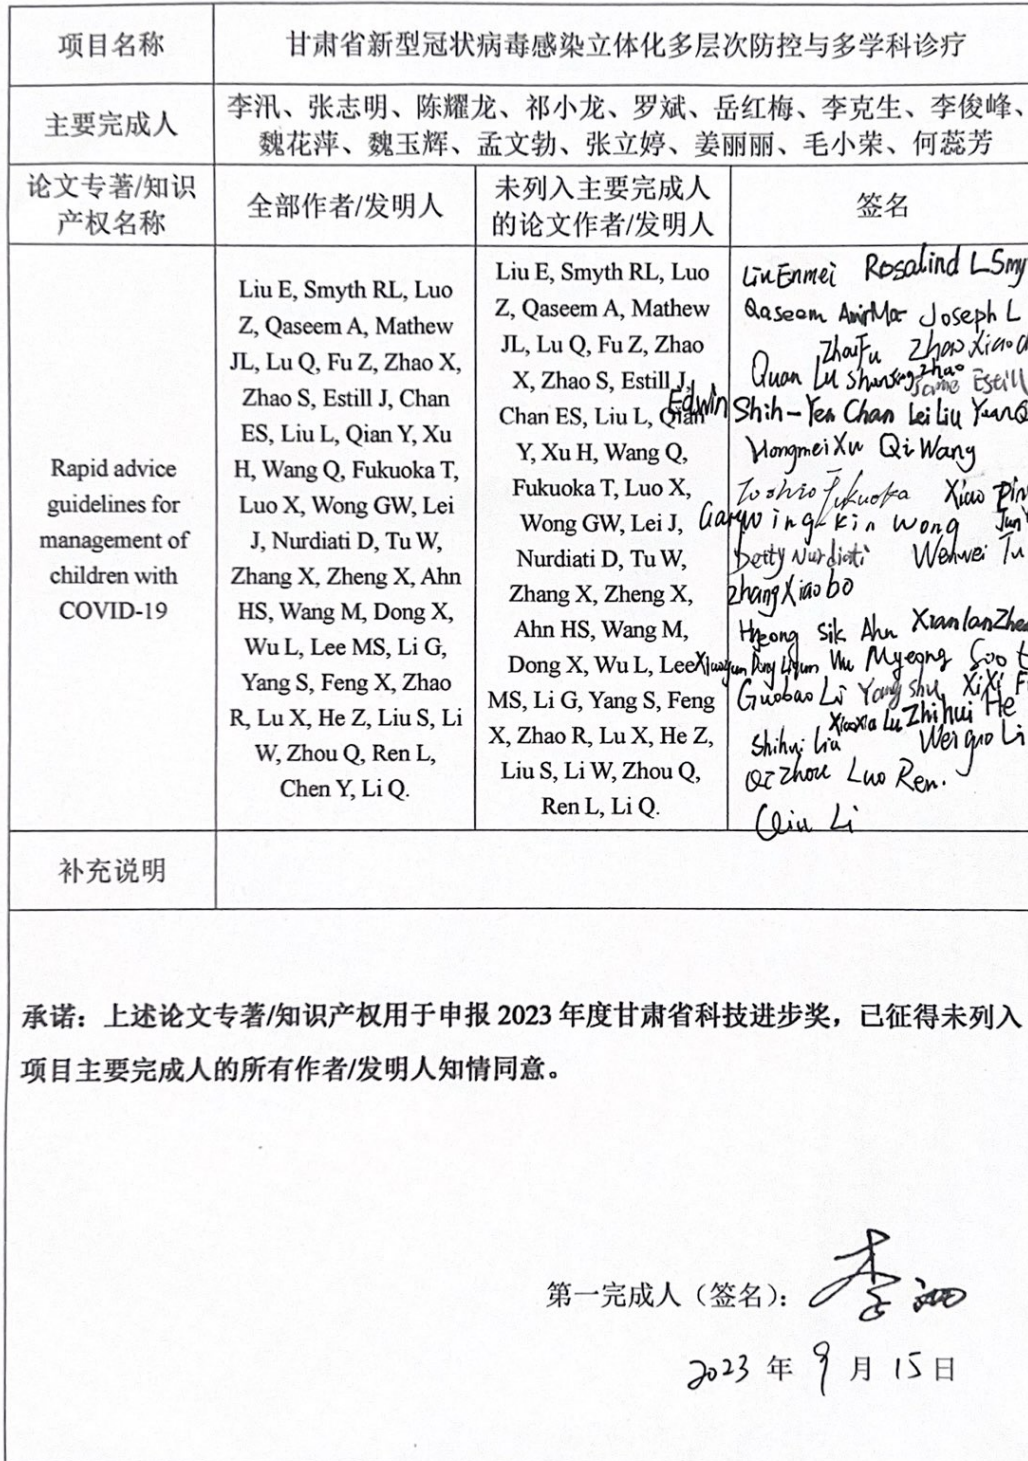 项目名称
甘肃省新型冠状病毒感染立体化多层次防控与多学科诊疗
主要完成人
李汛、张志明、陈耀龙、祁小龙、罗斌、岳红梅、李克生、李俊峰、
魏花萍、魏玉辉、孟文勃、张立婷、姜丽丽、毛小荣、何蕊芳
论文专著/知识
产权名称
全部作者/发明人
未列入主要完成人
的论文作者/发明人
签名
Rapid advice
guidelines for
management of
children with
COVID-19
Liu E, Smyth RL, Luo
Z, Qaseem A, Mathew
JL, Lu Q, Fu Z, Zhao X,
Zhao S, Estill J, Chan
ES, Liu L, Qian Y, Xu
H, Wang Q, Fukuoka T,
Luo X, Wong GW, Lei
J, Nurdiati D, Tu W,
Zhang X, Zheng X, Ahn
HS, Wang M, Dong X,
Wu L, Lee MS, Li G,
Yang S, Feng X, Zhao
R, Lu X, He Z, Liu S, Li
W, Zhou Q, Ren L,
Chen Y, Li Q.
Liu E, Smyth RL, Luo
Z, Qaseem A, Mathew
JL, Lu Q, Fu Z, Zhao
X, Zhao S, Estill J,
Chan ES, Liu L, Qian
Y, Xu H, Wang Q,
Fukuoka T, Luo X,
Wong GW, Lei J,
Nurdiati D, Tu W,
Zhang X, Zheng X,
Ahn HS, Wang M,
Dong X, Wu L, Lee
MS, Li G, Yang S, Feng
X, Zhao R, Lu X, He Z,
Liu S, Li W, Zhou Q,
Ren L, Li Q.
Liu Enmei Rosalind L Smy
Qaseem Joseph L
Zhou Fu Zhao Xiao
Quan Lu Estill
Edwin Shih-Yen Chan Lei Liu Yuan Q
Hongmei Xu Qi Wang
Toshio Fukuoka Xiao
Gary wing-kin wong Jun
Detty Nurdiati Wenwei Tu
Zhang Xiaobo
Hyeong Sik Ahn Xianlan Zhe
Dong Liqun Wu Myeong Soo
Guobao Li Yang shu XiXi F
Xiaoxia Lu Zhihui He
Shihui Liu Weiguo Li
Qi Zhou Luo Ren.
Qiu Li
补充说明
承诺：上述论文专著/知识产权用于申报 2023 年度甘肃省科技进步奖，已征得未列入
项目主要完成人的所有作者/发明人知情同意。
第一完成人（签名）：李汛
2023 年 9 月 15 日